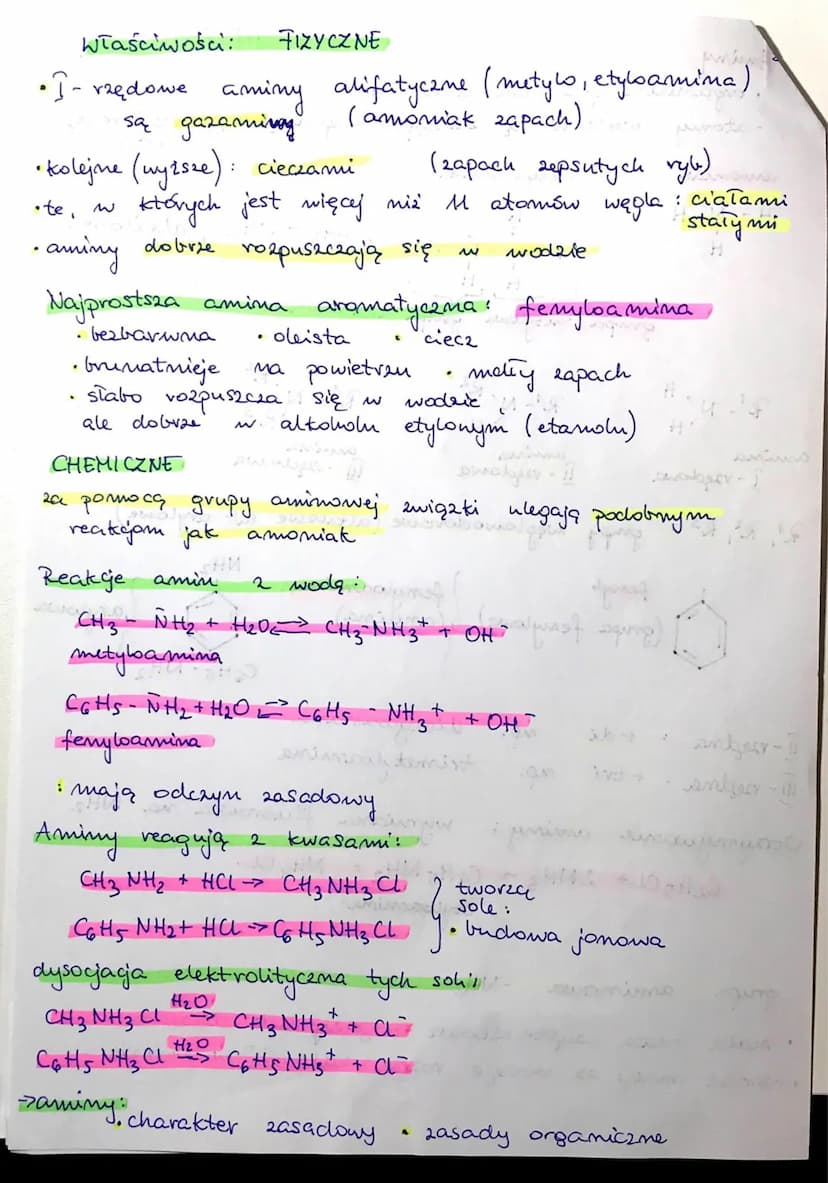 właściwości: FIZYCZNE
• I- rzędowe aminy alifatyczne (metylo, etyloamina)
są gazami (amoniak zapach)
• kolejne (wyższe): cieczami (zapach zepsutych ryb)
• te, w których jest więcej niż 11 atomów węgla: ciałami
stałymi
• aminy dobrze rozpuszczają się w wodzie
Najprostsza amina aromatyczna: fenyloamina
• bezbarwna • oleista • ciecz
• brunatnieje na powietrzu • mdły zapach
• słabo rozpuszcza się w wodzie,
ale dobrze w alkoholu etylowym (etanolu)
CHEMICZNE
za pomocą grupy aminowej związki ulegają podobnym
reakcjom jak amoniak
Reakcje amin z wodą:
CH3 - N̄H2 + H2O ⇄ CH3-NH3⁺ + OH⁻
metyloamina
C6H5 - N̄H2 + H2O ⇄ C6H5 - NH3⁺ + OH⁻
fenyloamina
: mają odczyn zasadowy
Aminy reagują z kwasami:
CH3NH2 + HCl → CH3NH3Cl } tworzą
sole:
C6H5NH2 + HCl → C6H5NH3Cl • budowa jonowa
dysocjacja elektrolityczna tych soli:
CH3NH3Cl H2O→ CH3NH3⁺ + Cl⁻
C6H5NH3Cl H2O→ C6H5NH3⁺ + Cl⁻
→aminy:
• charakter zasadowy • zasady organiczne